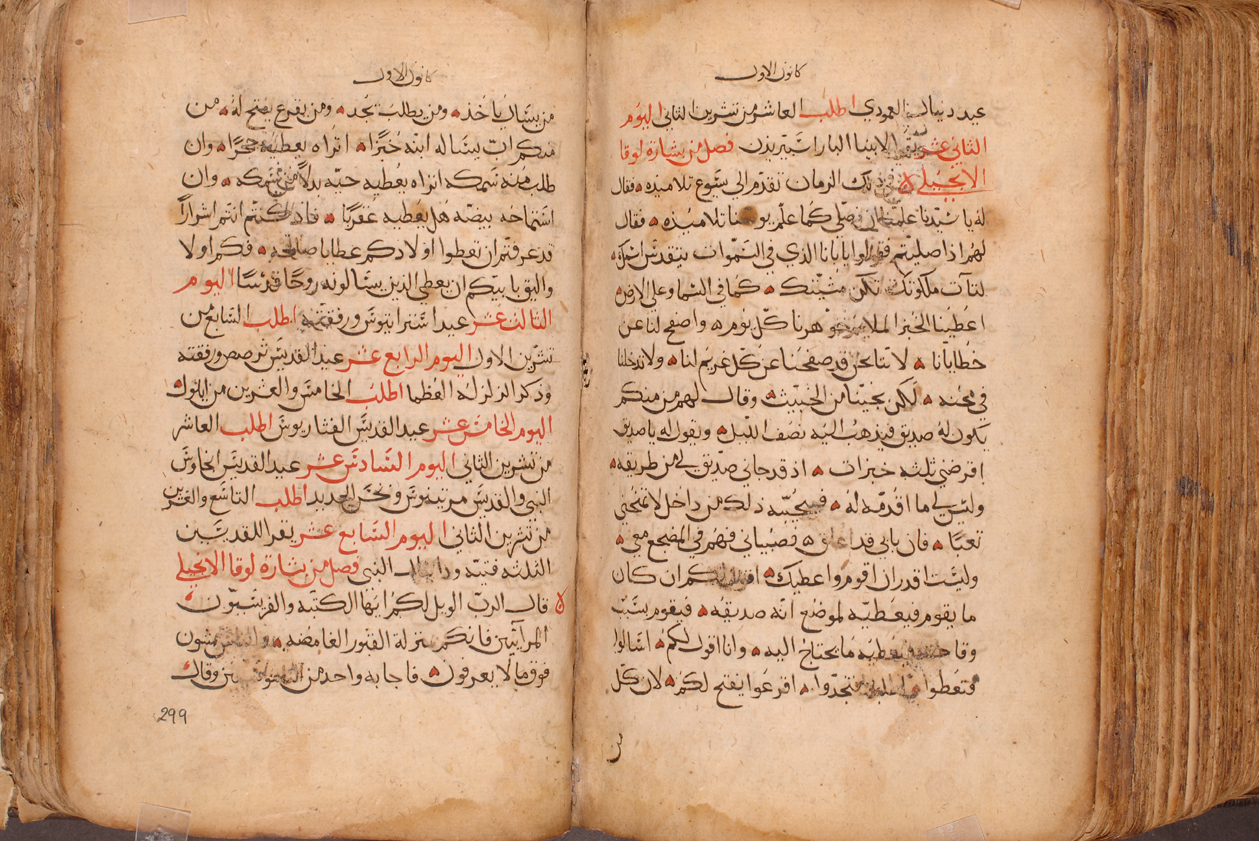 كانون الاول
عيد دنيال العمودي اطلب العاشر من تشرين الثاني اليوم
الثاني عشر الابينا البار فصل من بشارة لوقا
الانجيلي في ذلك الزمان تقدم الى يسوع تلاميذه فقال
له يا سيدنا علمنا نصلي كما علم يوحنا تلاميذه فقال
لهم اذا صليتم فقولوا يا بانا الذي في السموات يتقدس اسمك
لتات ملكوتك لتكن مشيتك كما في السما وعلى الارض
اعطينا الخبز الملايم هرنا كل يوم واصفح لنا عن
خطايانا لاننا نحن قد صفحنا عن كل غريم لنا ولا تدخلنا
في محنه لكن نجينا من الخبيث وقال لهم من منكم
يكون له صديق فيذهب اليه نصف الليل ويقول له يا صديق
اقرضني ثلثة خبزات اذ قد جاني صديق لي من طريقه
وليس لي ما اقدمه له فيجيبه ذلك من داخل لا تمنحني
تعبًا فان بابي قد اغلق وصبياني فهم في المضجع معي
وليست اقدر ان اقوم واعطيك اقول لكم ان كان
ما يقوم فيعطيه لموضع انه صديقه فيقوم بسبب
وقاحته فيعطيه ما يحتاج اليه وانا اقول لكم اسالوا
فتعطوا اطلبوا فتجدوا اقرعوا يفتح لكم لان كل
كانون الاول
من يسال ياخذ ومن يطلب يجد ومن يقرع يفتح له من
منكم اب يساله ابنه خبزًا اتراه يعطيه حجرًا وان
طلب منه سمكه اتراه يعطيه حيه بدلًا من سمكه وان
استماحه بيضه هل يعطيه عقربًا فاذ كنتم انتم اشرارًا
قد عرفتم ان تعطوا اولادكم عطايا صالحه فكم اولا
واليق بابيكم ان يعطي الذين يسالونه روحًا قدسًا اليوم
الثالث عشر عيد استراتيوس ورفقته اطلب السابع من
تشرين الاول اليوم الرابع عشر عيد القديس ثرصص ورفقته
وذكر الزلزله العظما اطلب الخامس والعشرين من ايلول
اليوم الخامس عشر عيد القديس الفثاريوس اطلب العاشر
من تشرين الثاني اليوم السادس عشر عيد القديس الجاوس
النبي والقديس مرينوس ونحن الجديد اطلب التاسع والعشرين
من تشرين الثاني اليوم السابع عشر يقرا للقديسين
الثلثه فتيه ودانيال النبي فصل من بشارة لوقا الانجيلي
قال الرب الويل لكم ايها الكتبه والفريسيون
المرآيين فانكم بمنزلة القبور الغامضه والناس يمشون
فوقها لا يعرفون فاجابه واحد من الناموسيين وقال
299